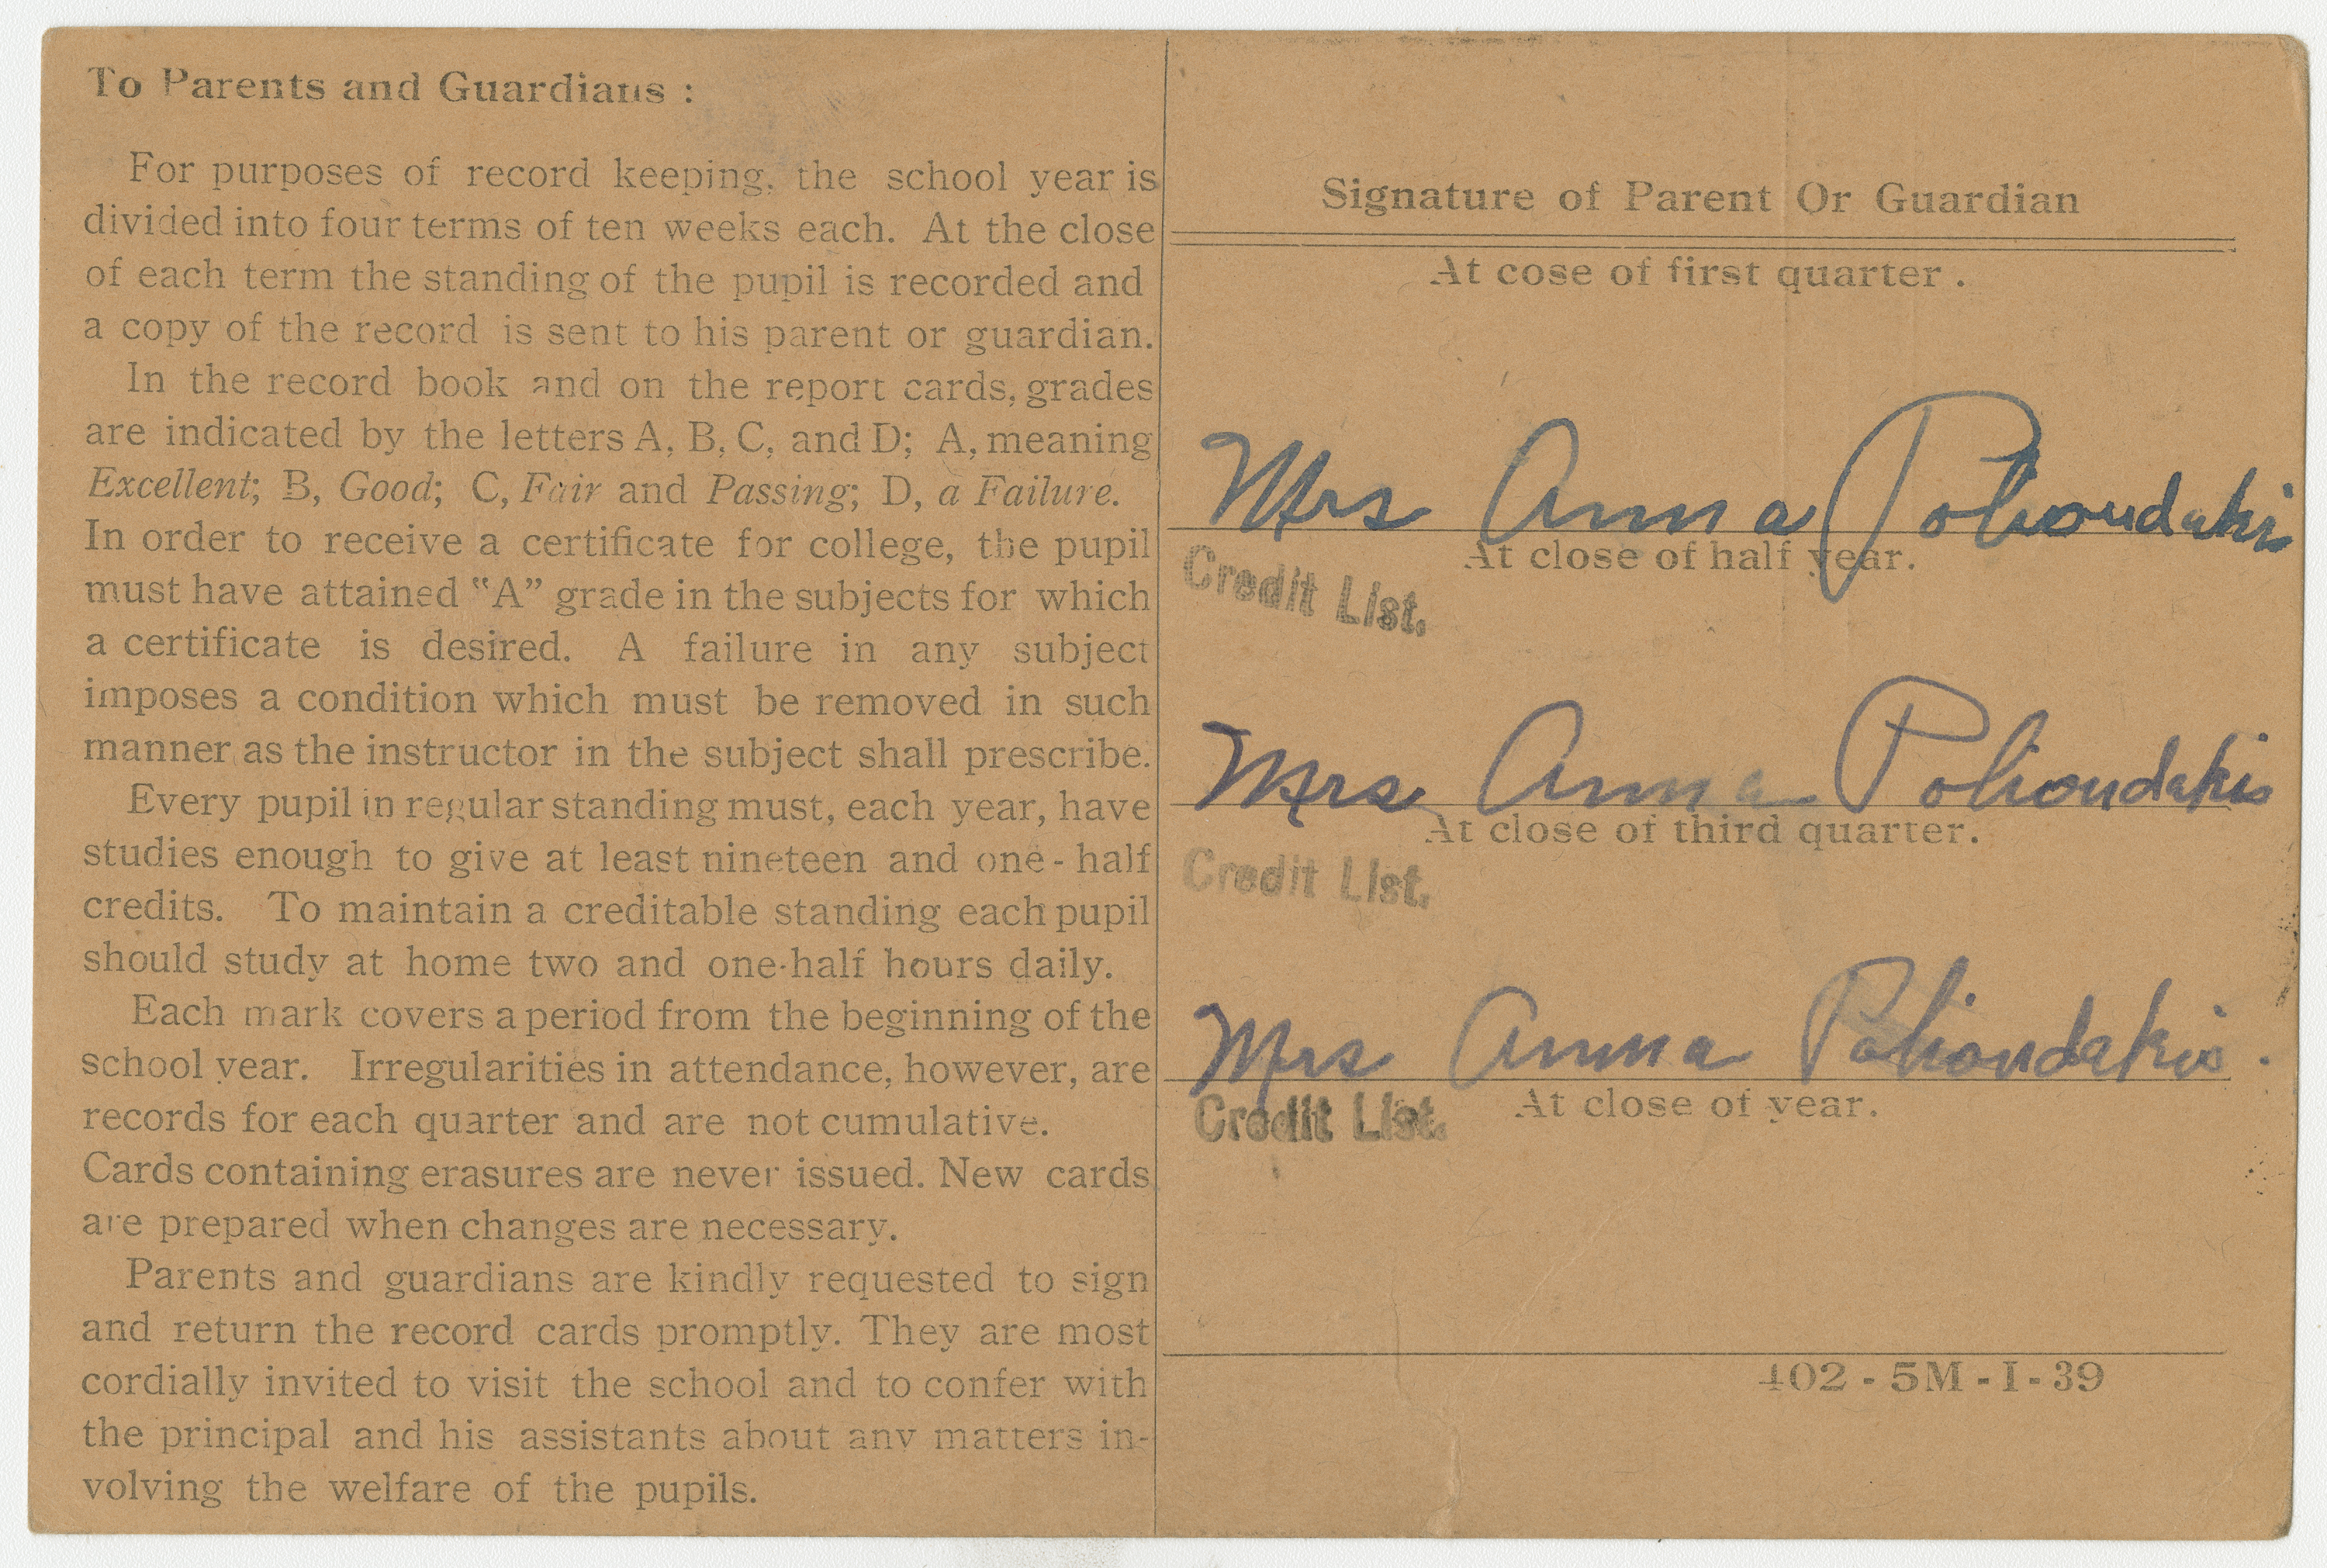 To Parents and Guardians :
For purposes of record keeping, the school year is
divided into four terms of ten weeks each. At the close
of each term the standing of the pupil is recorded and
a copy of the record is sent to his parent or guardian.
In the record book and on the report cards, grades
are indicated by the letters A, B, C, and D; A, meaning
Excellent; B, Good; C, Fair and Passing; D, a Failure.
In order to receive a certificate for college, the pupil
must have attained "A" grade in the subjects for which
a certificate is desired. A failure in any subject
imposes a condition which must be removed in such
manner as the instructor in the subject shall prescribe.
Every pupil in regular standing must, each year, have
studies enough to give at least nineteen and one-half
credits. To maintain a creditable standing each pupil
should study at home two and one-half hours daily.
Each mark covers a period from the beginning of the
school year. Irregularities in attendance, however, are
records for each quarter and are not cumulative.
Cards containing erasures are never issued. New cards
are prepared when changes are necessary.
Parents and guardians are kindly requested to sign
and return the record cards promptly. They are most
cordially invited to visit the school and to confer with
the principal and his assistants about any matters in-
volving the welfare of the pupils.
Signature of Parent Or Guardian
At cose of first quarter.
Mrs Anna Polioudakis
At close of half year.
Credit List.
Mrs Anna Polioudakis
At close of third quarter.
Credit List.
Mrs Anna Polioudakis.
At close of year.
Credit List.
402 - 5M - I - 39